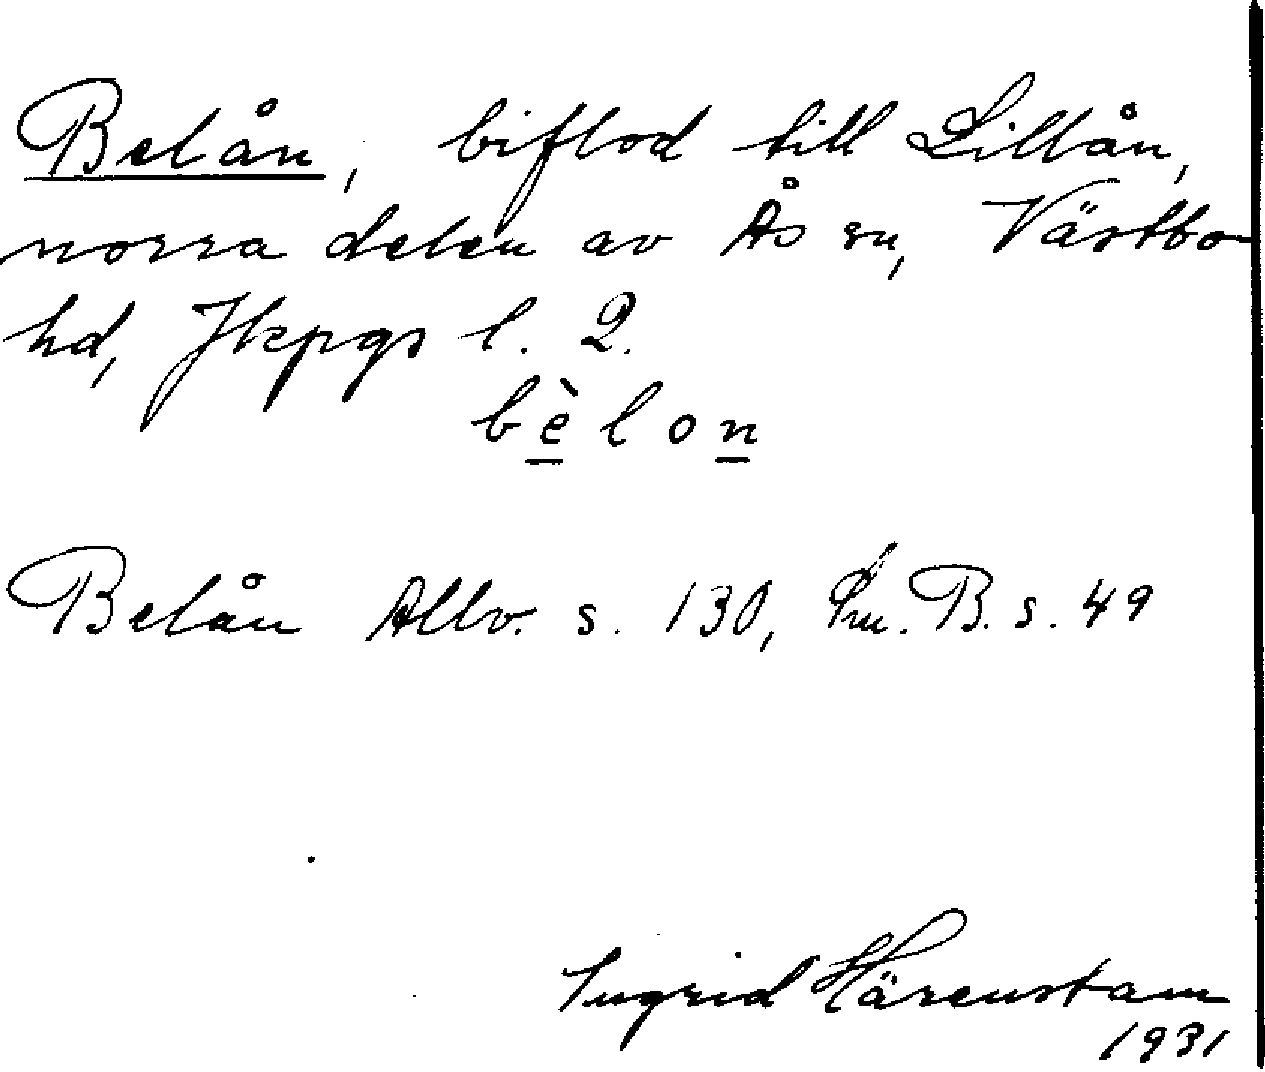 Belån, biflod till Lillån,
norra delen av Ås sn, Västbo
hd, Jkpgs l. 2.
bèlon
Belån Allv. s. 130, Sm. B. s. 49
Ingrid Härenstam
1931